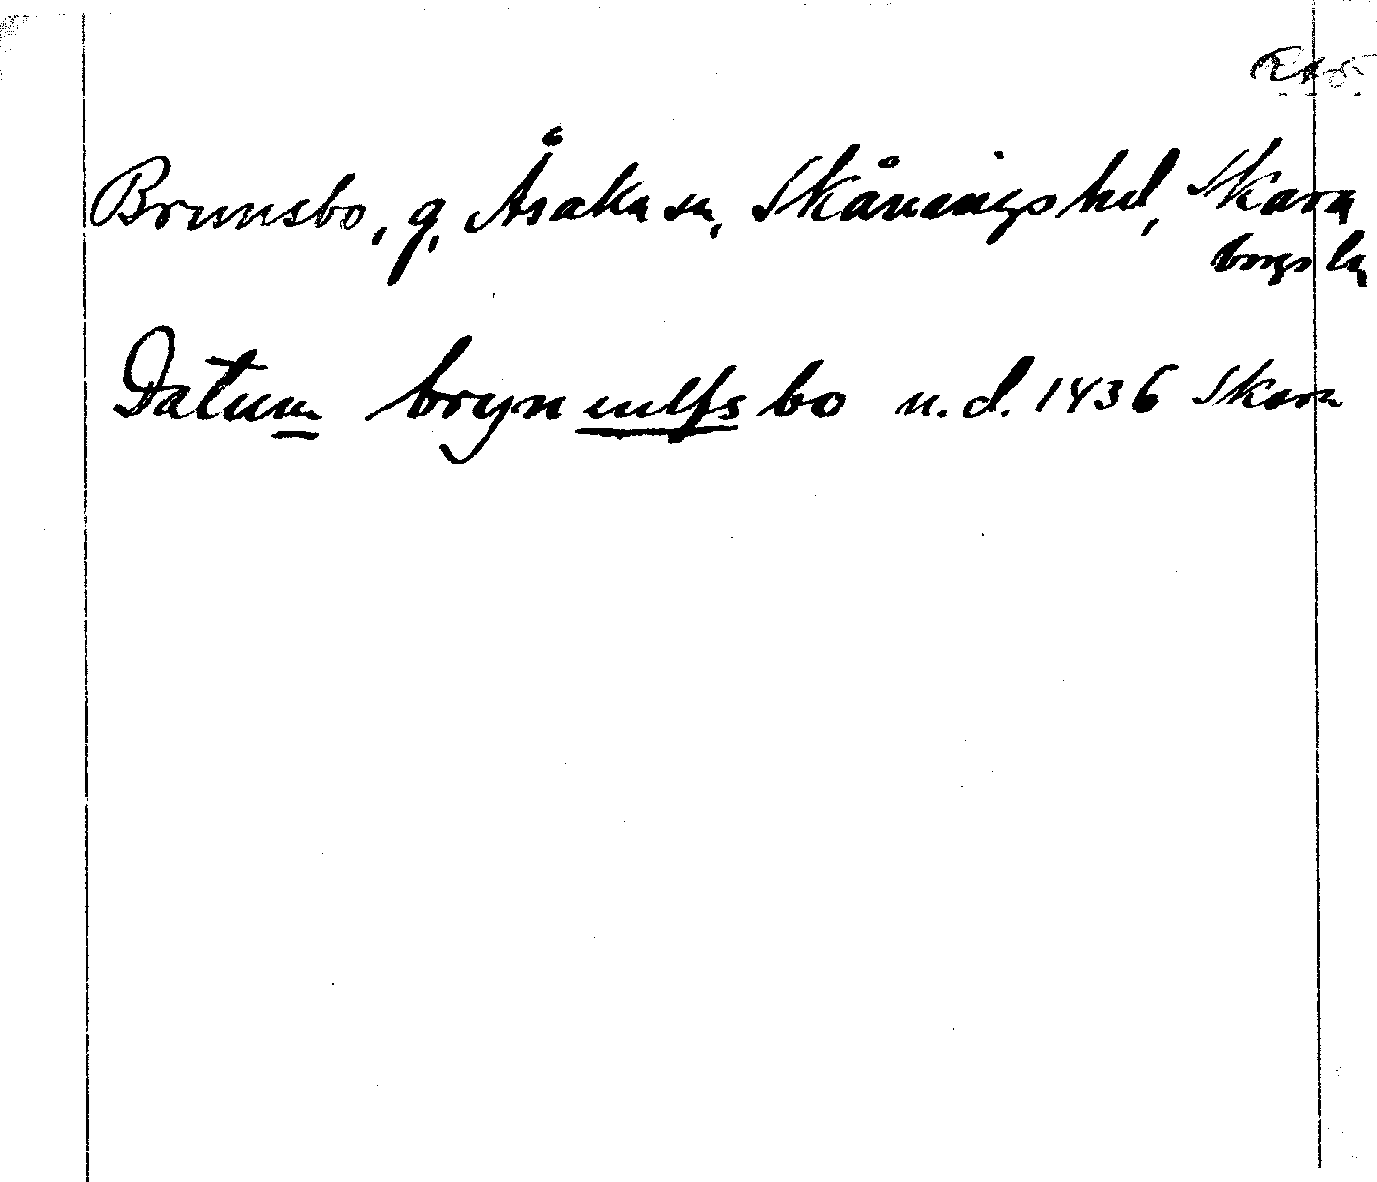 Brunsbo, g, Åsaka sn, Skånings hd, Skara
borgs ln
Datum brynnulfsbo u. d. 1436 Skara